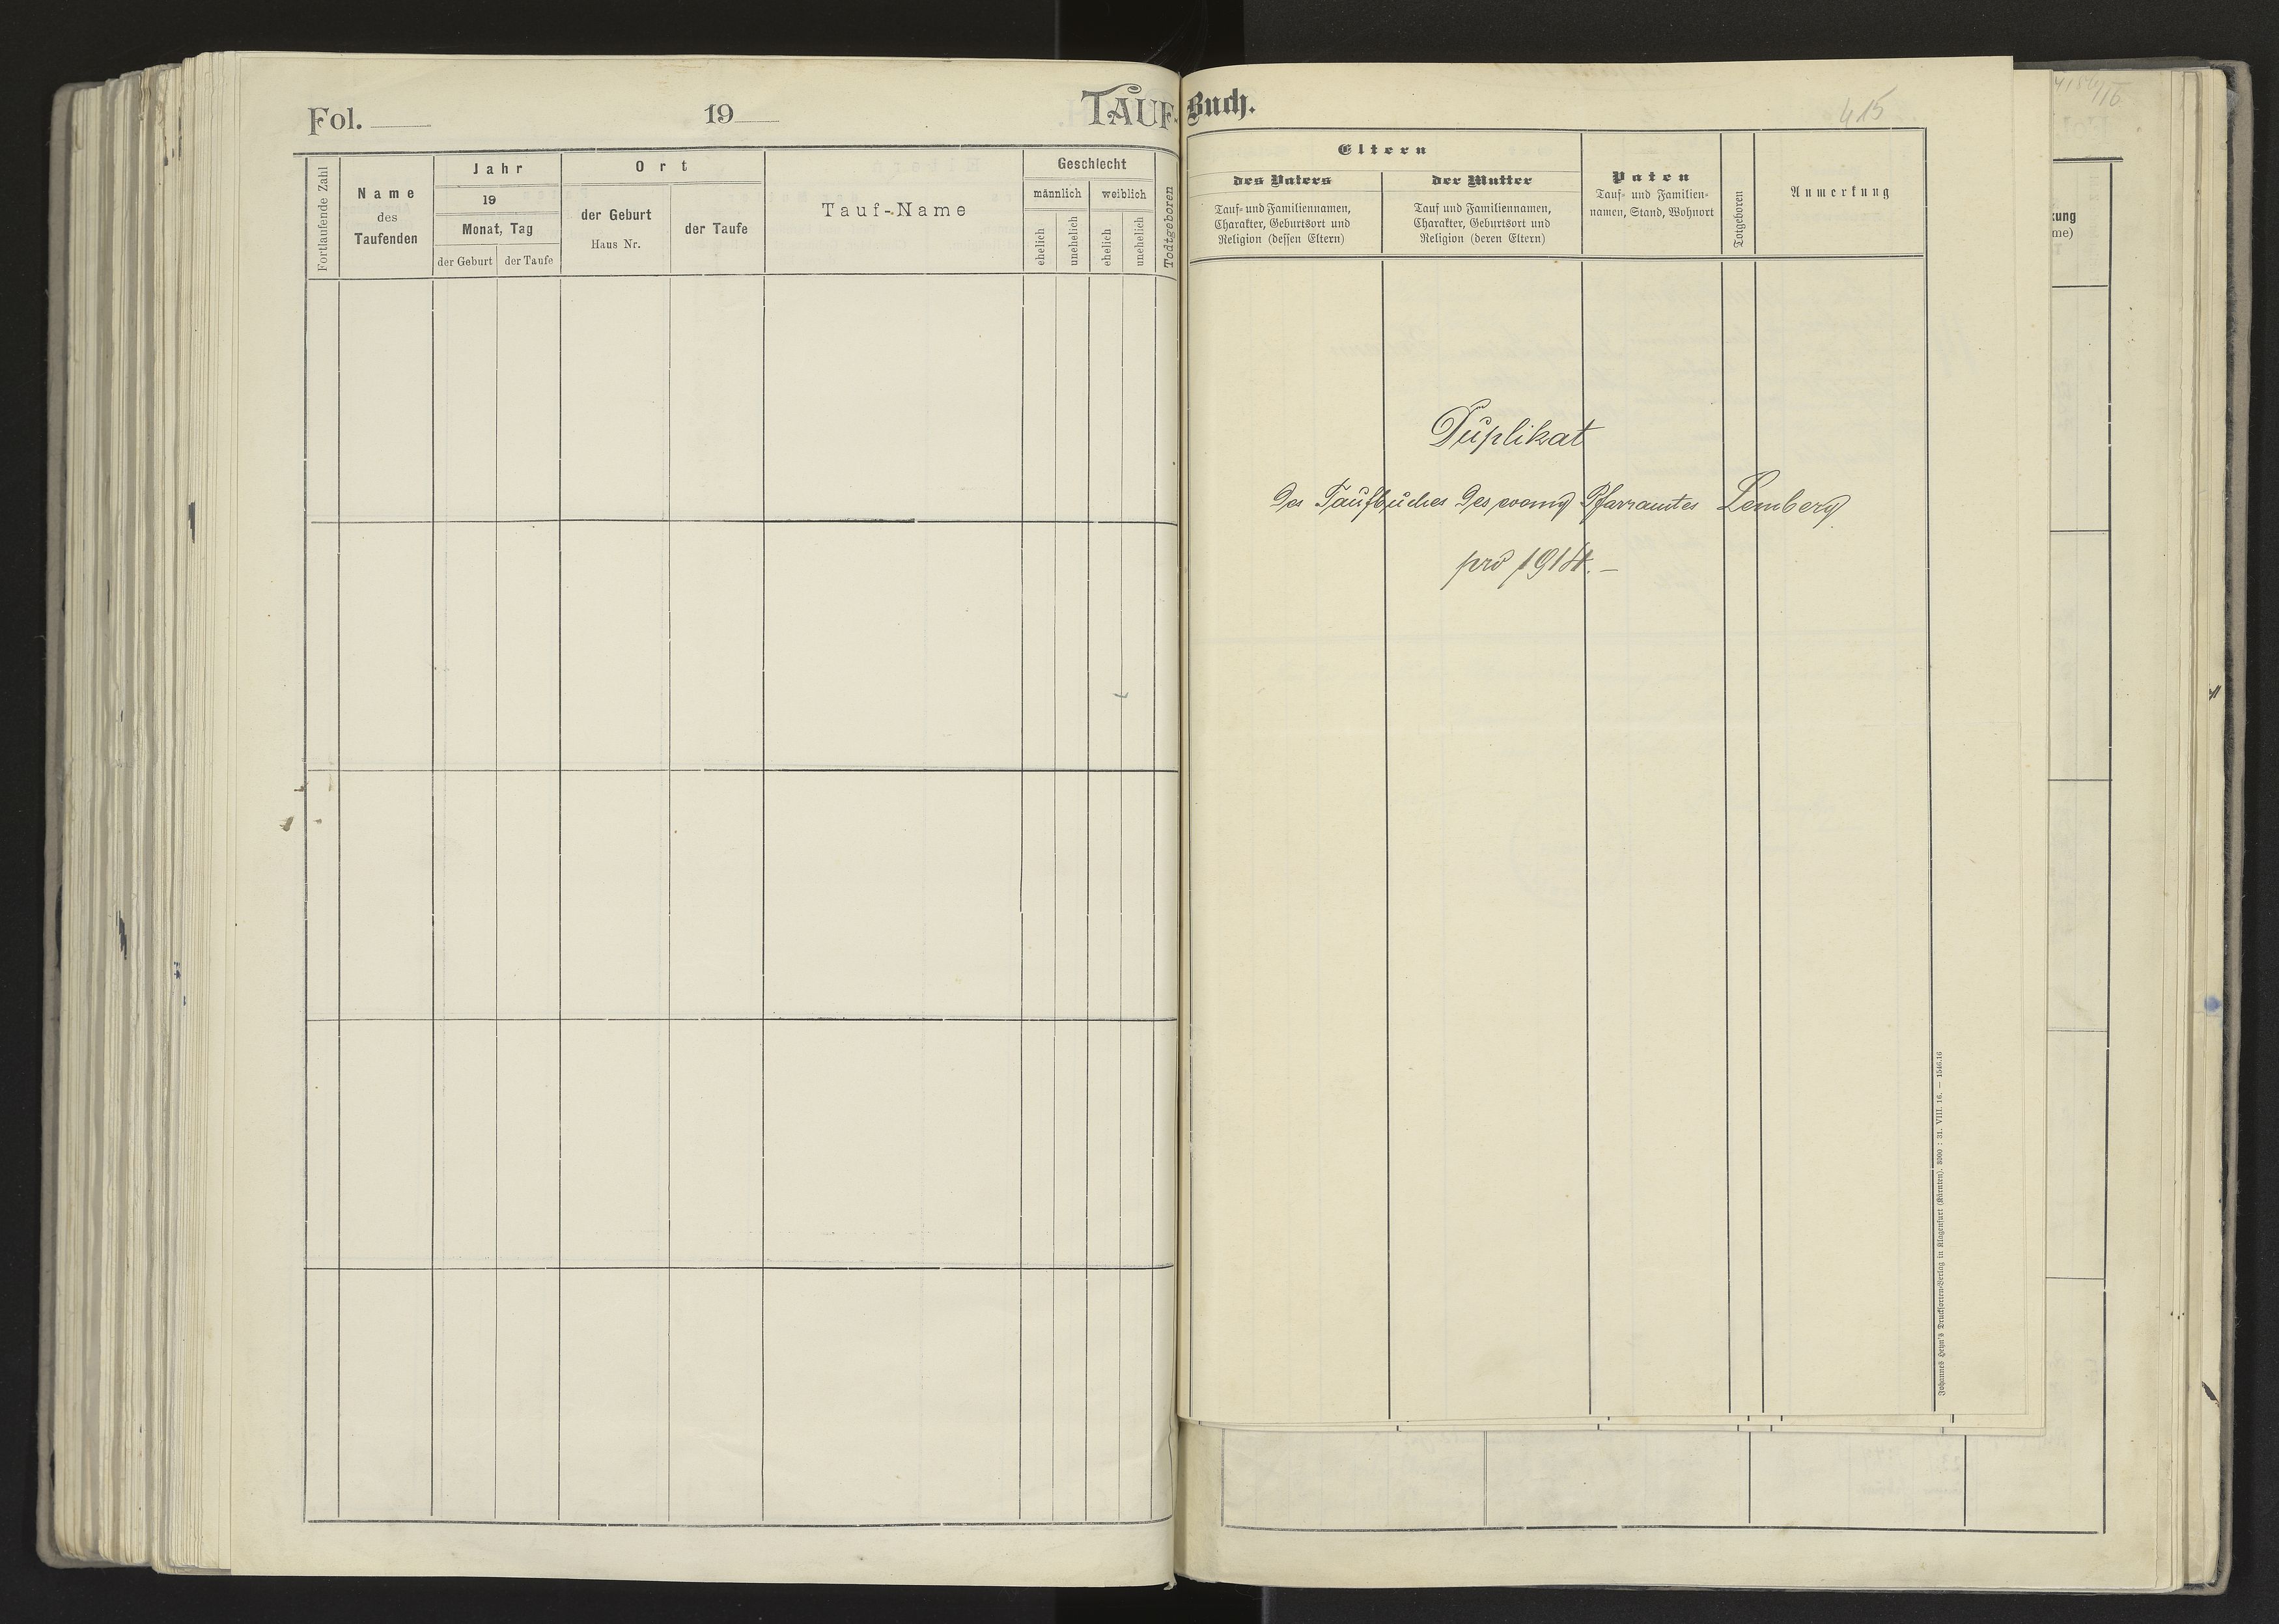 Fol.
19
TAUF-
Fortlaufende Zahl
Name
des
Taufenden
Jahr
19
Monat, Tag
der Geburt
der Taufe
Ort
der Geburt
Haus Nr.
der Taufe
Tauf-Name
Geschlecht
männlich
weiblich
ehelich
unehelich
ehelich
unehelich
Todtgeboren
Buch.
415
Eltern
des Vaters
Tauf- und Familiennamen,
Charakter, Geburtsort und
Religion (dessen Eltern)
der Mutter
Tauf und Familiennamen,
Charakter, Geburtsort und
Religion (deren Eltern)
Paten
Tauf- und Familien-
namen, Stand, Wohnort
Totgeboren
Anmerkung
Duplikat
des Taufbuches des evang Pfarramtes Lemberg
pro 1914.–
Johannes Heyn's Drucksorten-Verlag in Klagenfurt (Kärnten). 3000 : 31. VIII. 16. — 1546.16
kung
me)